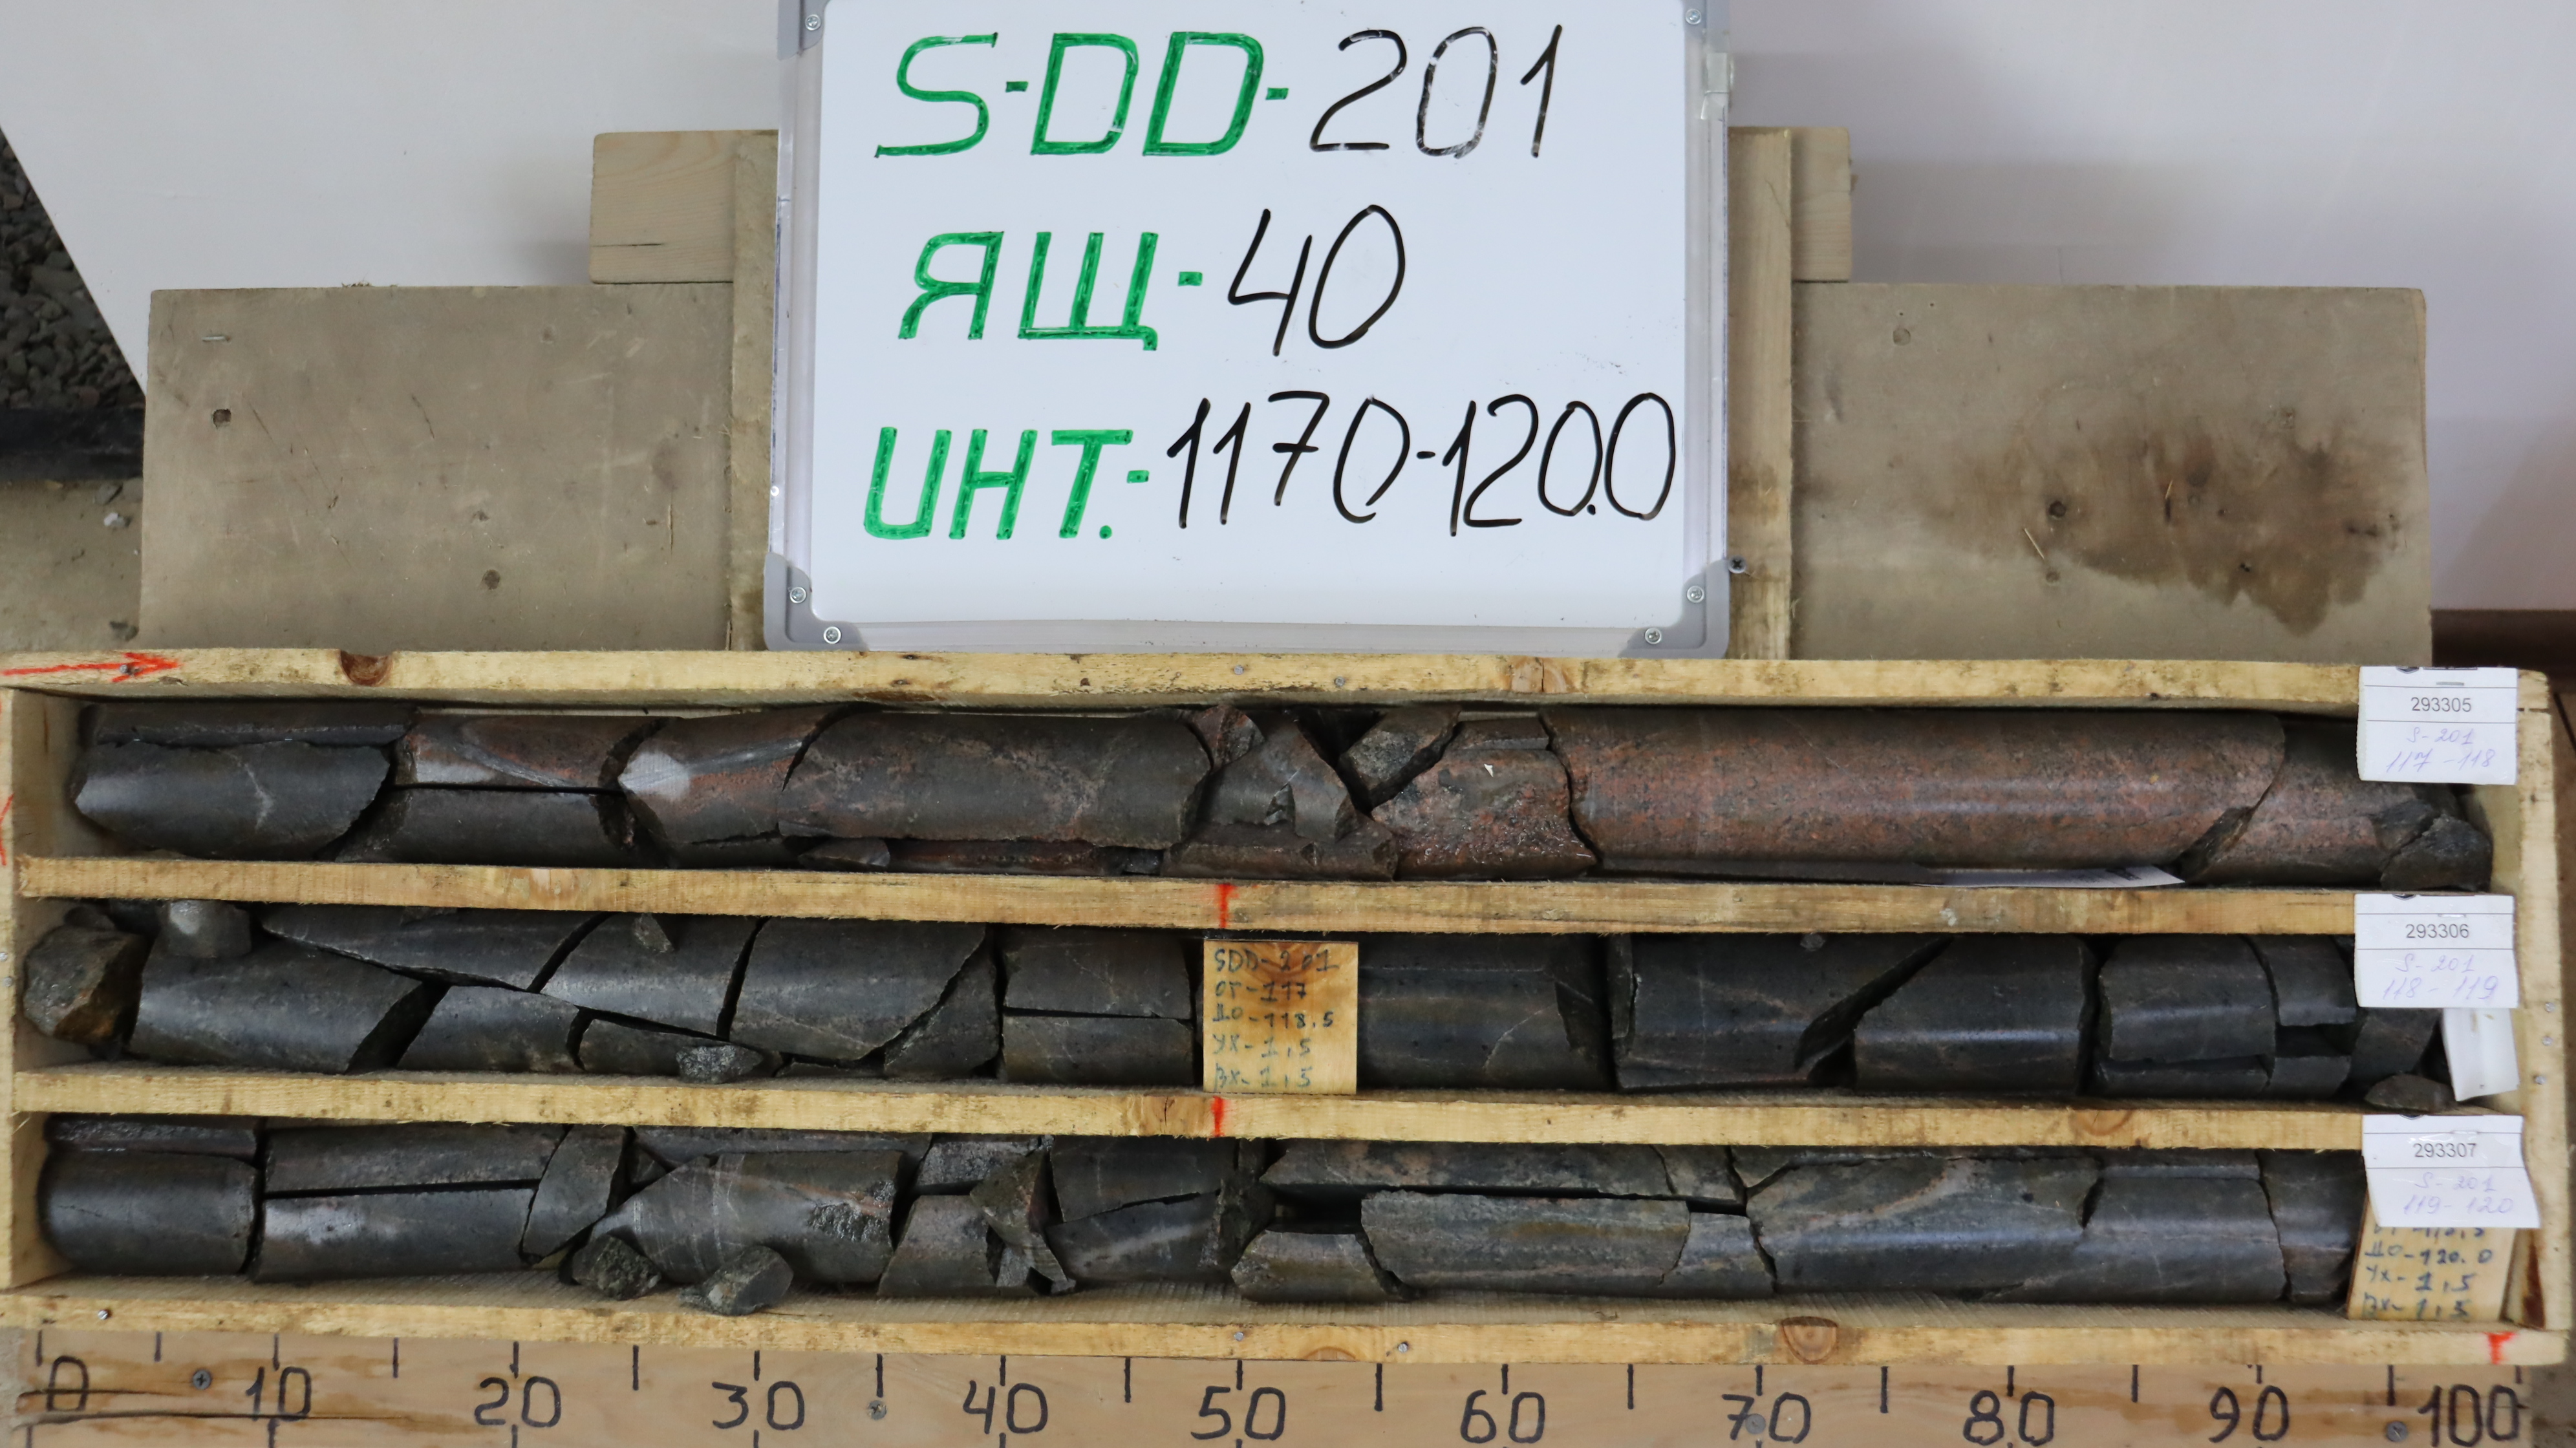 S-DD-201
ЯЩ-40
ИНТ.-1170-120.0
293305
S-201
117-118
293306
S-201
118-119
SDD-201
ОТ-117
ДО-118.5
УХ-1,5
ВХ-1,5
293307
S-201
119-120
ДО-120.0
УХ-1,5
ВХ-1,5
0 10 20 30 40 50 60 70 80 90 100